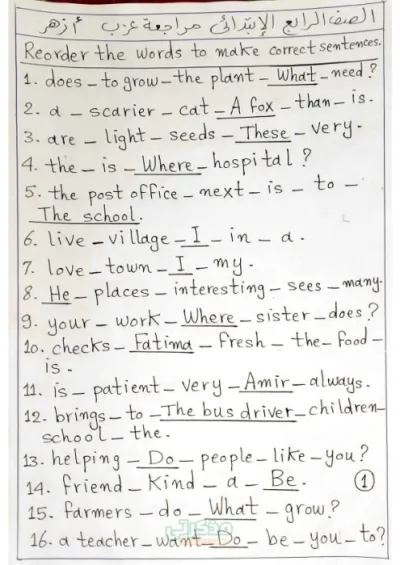 الصف الرابع الإبتدائى مراجعة عربى أزهر
Reorder the words to make correct sentences.
1. does – to grow – the plant – What – need?
2. a – scarier – cat – A fox – than – is.
3. are – light – seeds – These – very.
4. the – is – Where – hospital?
5. the post office – next – is – to –
The school.
6. live – village – I – in – a.
7. love – town – I – my.
8. He – places – interesting – sees – many.
9. your – work – Where – sister – does?
10. checks – Fatima – fresh – the – food –
is.
11. is – patient – very – Amir – always.
12. brings – to – The bus driver – children –
school – the.
13. helping – Do – people – like – you?
14. friend – Kind – a – Be. 1
15. farmers – do – What – grow?
16. a teacher – want – Do – be – you – to?